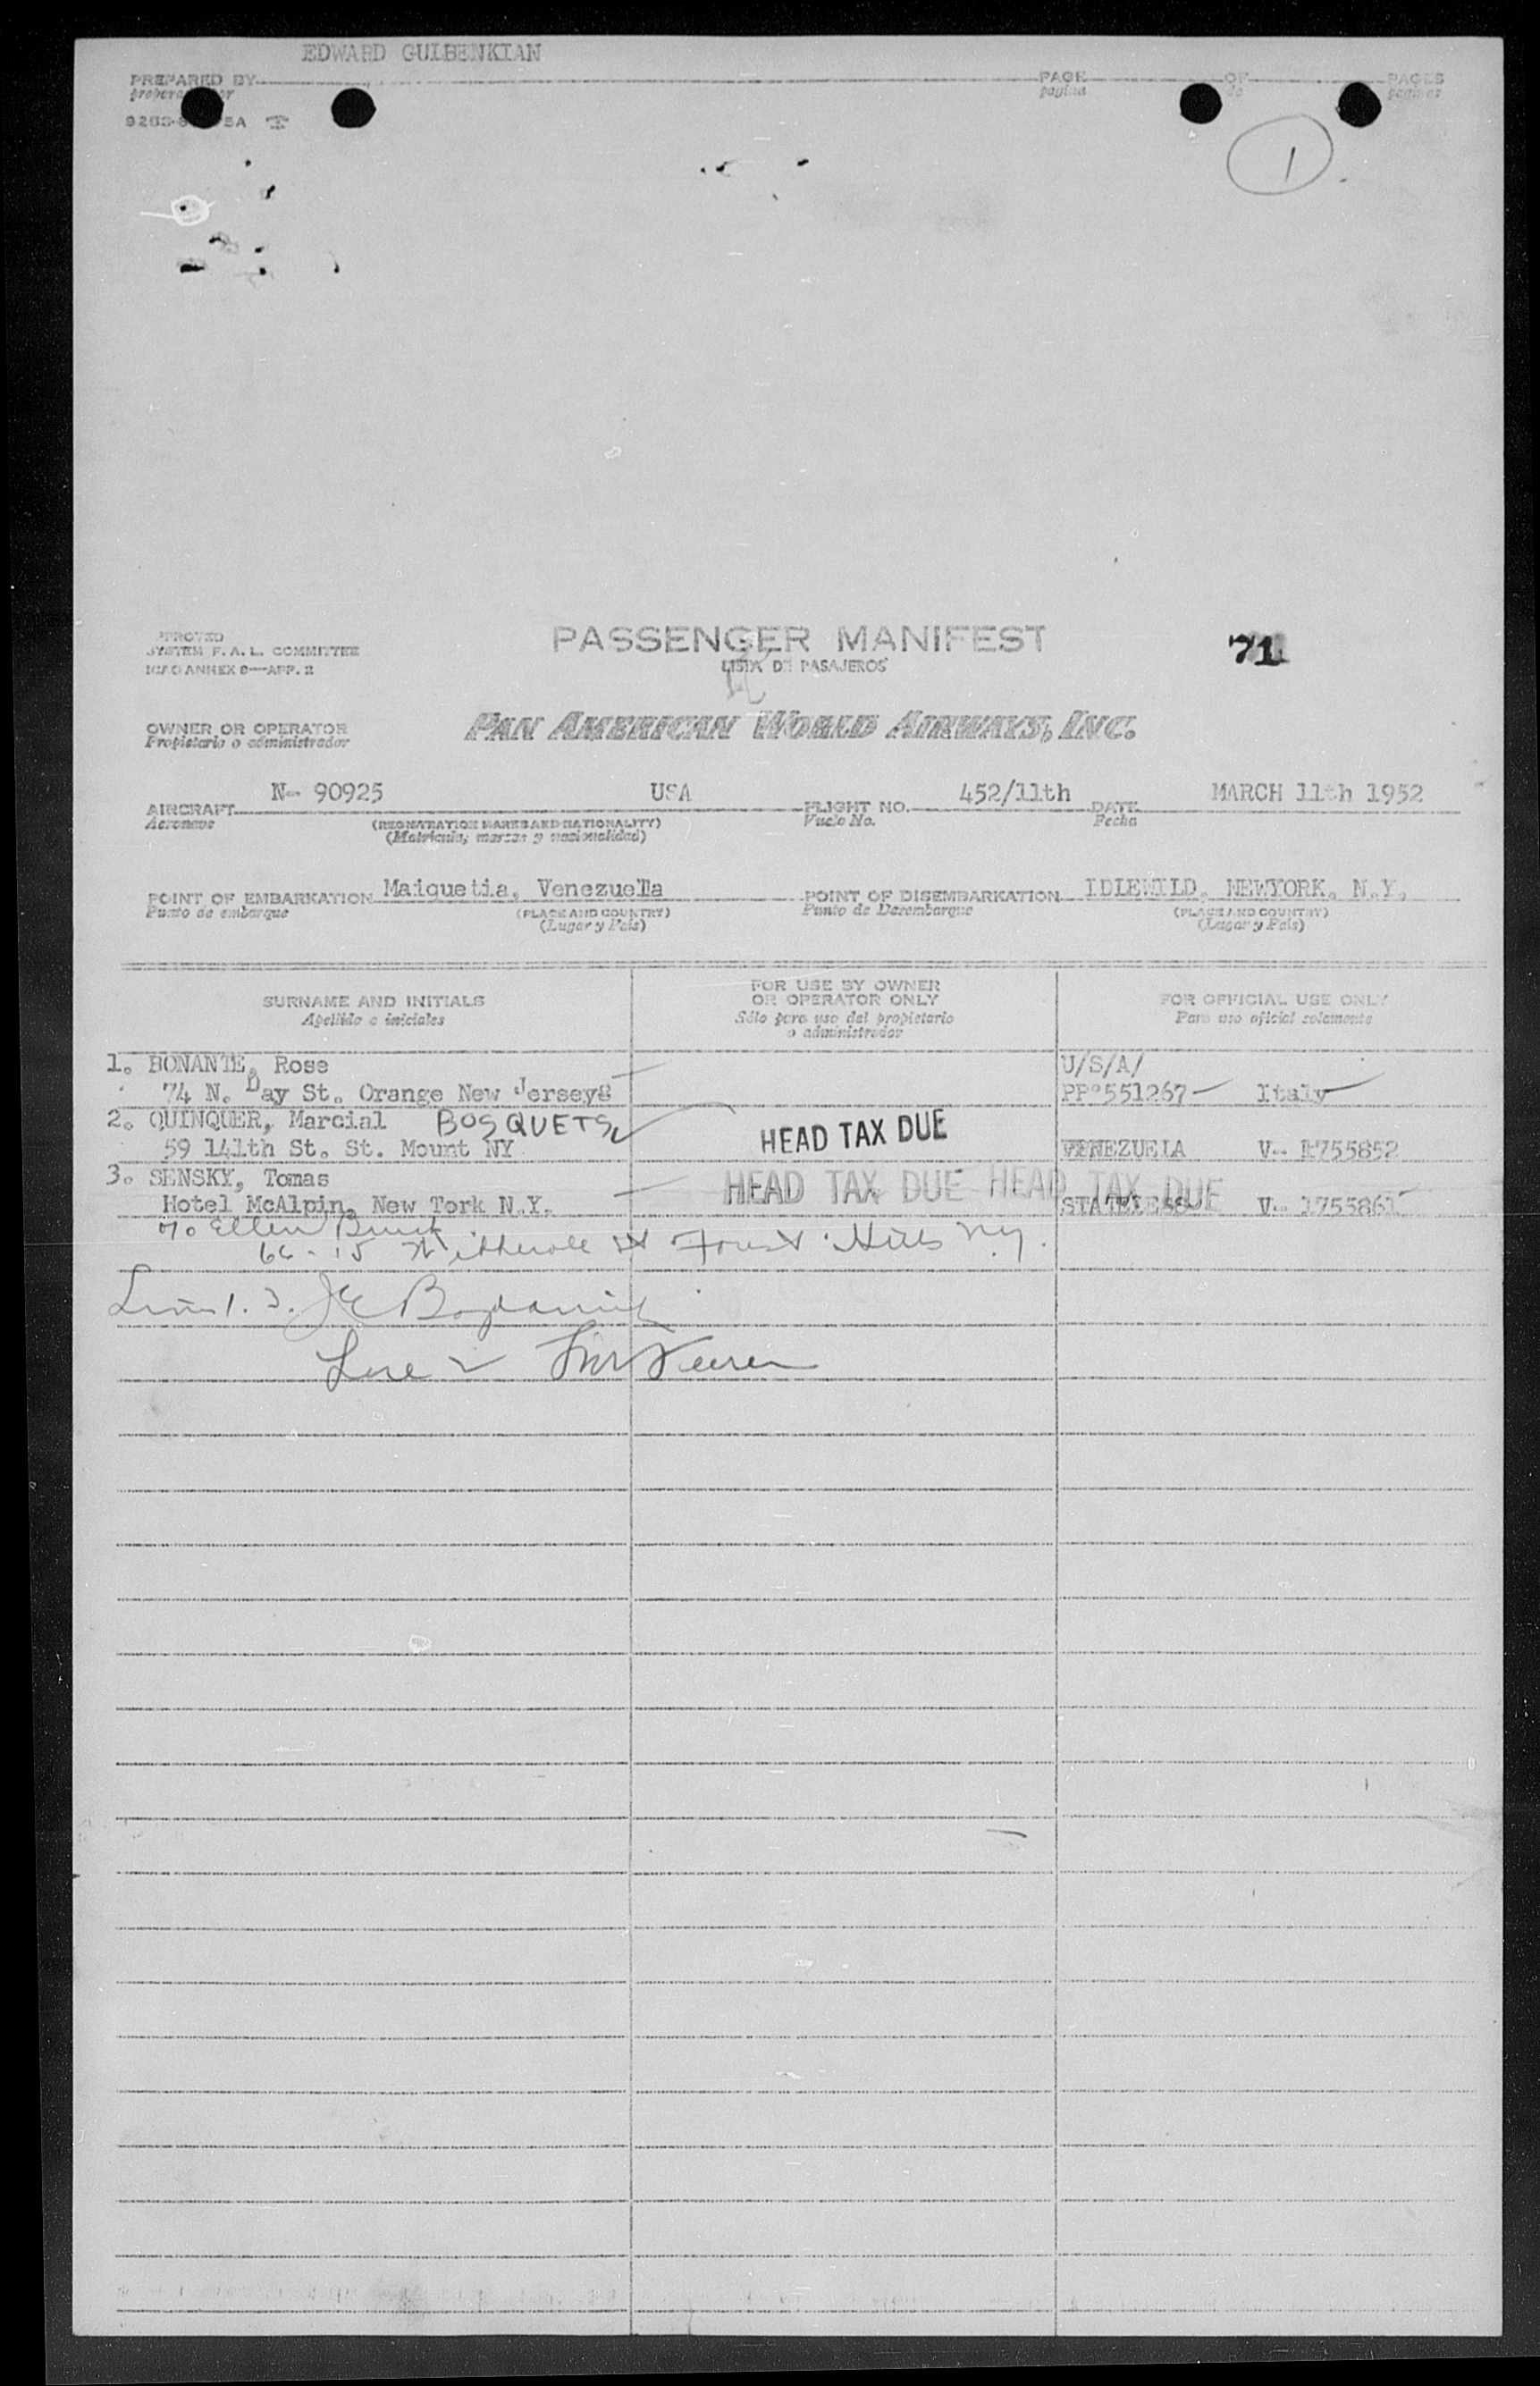 EDWARD GULBENKIAN
PREPARED BY PAGE OF PAGES
pagina de paginas
1
APPROVED
SYSTEM F. A. L. COMMITTEE
ICAO ANNEX 9—APP. 2
PASSENGER MANIFEST
LISTA DE PASAJEROS
71
OWNER OR OPERATOR
Propietario o administrador
PAN AMERICAN WORLD AIRWAYS, INC.
AIRCRAFT N- 90925 USA FLIGHT NO. 452/11th DATE MARCH 11th 1952
Aeronave (REGISTRATION MARKS AND NATIONALITY) Vuelo No. Fecha
(Matricula, marcas y nacionalidad)
POINT OF EMBARKATION Maiquetia, Venezuella POINT OF DISEMBARKATION IDLEWILD, NEWYORK, N.Y.
Punto de embarque (PLACE AND COUNTRY) Punto de Desembarque (PLACE AND COUNTRY)
(Lugar y País) (Lugar y País)
SURNAME AND INITIALS
Apellido e iniciales
FOR USE BY OWNER
OR OPERATOR ONLY
Sólo para uso del propietario
o administrador
FOR OFFICIAL USE ONLY
Para uso oficial solamente
1. BONANTE, Rose U/S/A/
74 N. Day St. Orange New Jersey PPº551267 Italy
2. QUINQUER, Marcial BOSQUETS HEAD TAX DUE
59 141th St. St. Mount NY VENEZUELA V-
3. SENSKY, Tomas HEAD TAX DUE HEAD TAX DUE
Hotel McAlpin, New York N.Y. STATELESS V- 1755861
c/o Ellen
66-15 St Forest Hills N.Y.
Line 1. 3.
Line 2